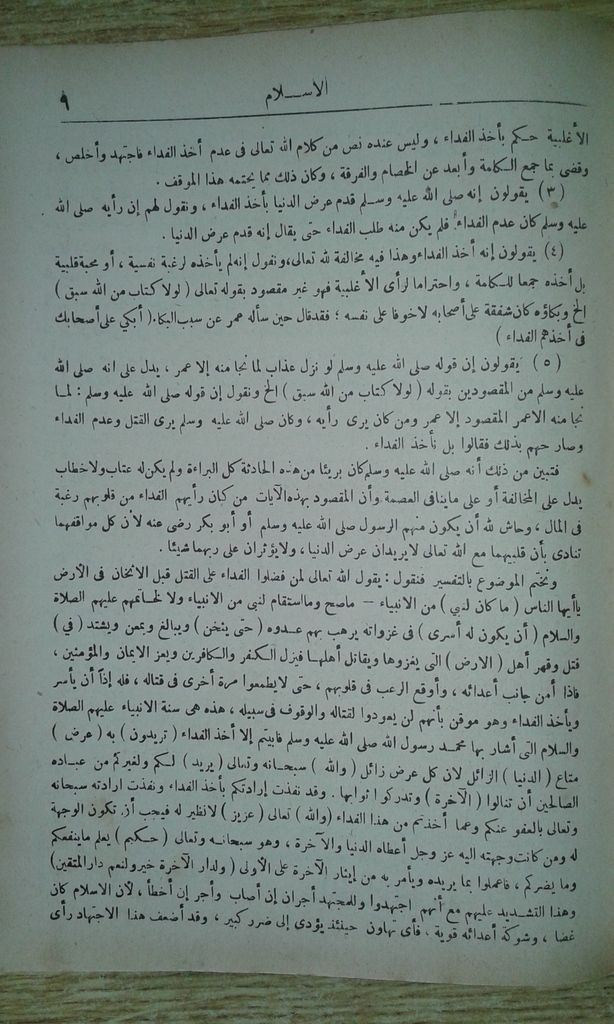 الاســلام
٩
الأغلبية حكم بأخذ الفداء ، وليس عنده نص من كلام الله تعالى فى عدم أخذ الفداء فاجتهد وأخلص ،
وقضى بما جمع الكلمة وأبعد عن الخصام والفرقة ، وكان ذلك مما يحتمه هذا الموقف .
(٣) يقولون إنه صلى الله عليه وسلم قدم عرض الدنيا بأخذ الفداء ، ونقول لهم إن رأيه صلى الله
عليه وسلم كان عدم الفداء فلم يكن منه طلب الفداء حتى يقال إنه قدم عرض الدنيا .
(٤) يقولون إنه أخذ الفداء وهذا فيه مخالفة لله تعالى، ونقول إنه لم يأخذه لرغبة نفسية ، أو محبة قلبية
بل أخذه جمعا للكلمة ، واحتراما لرأى الأغلبية فهو غير مقصود بقوله تعالى ( لولا كتاب من الله سبق )
الخ وبكاؤه كان شفقة على أصحابه لا خوفا على نفسه ؛ فقد قال حين سأله عمر عن سبب البكاء ( أبكي على أصحابك
فى أخذهم الفداء )
(٥) يقولون إن قوله صلى الله عليه وسلم لو نزل عذاب لما نجا منه إلا عمر ، يدل على انه صلى الله
عليه وسلم من المقصودين بقوله ( لولا كتاب من الله سبق ) الخ ونقول إن قوله صلى الله عليه وسلم : لما
نجا منه الا عمر المقصود إلا عمر ومن كان يرى رأيه ، وكان صلى الله عليه وسلم يرى القتل وعدم الفداء
وصارحهم بذلك فقالوا بل نأخذ الفداء .
فتبين من ذلك أنه صلى الله عليه وسلم كان بريئا من هذه الحادثة كل البراءة ولم يكن له عتاب ولا خطاب
يدل على المخالفة أو على ماينافى العصمة وأن المقصود بهذه الآيات من كان رأيهم الفداء من قلوبهم رغبة
فى المال ، وحاش لله أن يكون منهم الرسول صلى الله عليه وسلم أو أبو بكر رضى عنه لأن كل مواقفهما
تنادى بأن قلبيهما مع الله تعالى لا يريدان عرض الدنيا ، ولا يؤثران على ربهما شيئا .
ونختم الموضوع بالتفسير فنقول : يقول الله تعالى لمن فضلوا الفداء على القتل قبل الاثخان فى الأرض
ياأيها الناس ( ما كان لنبي ) من الانبياء – ماصح وما استقام لنبى من الانبياء ولا لخاتمهم عليهم الصلاة
والسلام ( أن يكون له أسرى ) فى غزواته يرهب بهم عدوه ( حتى يثخن ) ويبالغ ويمعن ويشتد ( في )
قتل وقهر أهل ( الارض ) التى يغزوها ويقاتل أهلها فيزل الكفر والكافرين ويعز الايمان والمؤمنين ،
فاذا أمن جانب أعدائه ، وأوقع الرعب فى قلوبهم ، حتى لا يطمعوا مرة أخرى فى قتاله ، فله إذاً أن يأسر
ويأخذ الفداء وهو موقن بأنهم لن يعودوا لقتاله والوقوف فى سبيله ، هذه هى سنة الانبياء عليهم الصلاة
والسلام التى أشار بها محمد رسول الله صلى الله عليه وسلم فابيتم إلا أخذ الفداء ( تريدون ) به ( عرض )
متاع ( الدنيا ) الزائل لان كل عرض زائل ( والله ) سبحانه وتعالى ( يريد ) لكم ولغيركم من عباده
الصالحين أن تنالوا ( الآخرة ) وتدركوا ثوابها . وقد نفذت إرادتكم بأخذ الفداء ونفذت ارادته سبحانه
وتعالى بالعفو عنكم وعما أخذتم من هذا الفداء (والله ) تعالى ( عزيز ) لا نظير له فيجب أن تكون الوجهة
له ومن كانت وجهته اليه عز وجل أعطاه الدنيا والآخرة ، وهو سبحانه وتعالى ( حكيم ) يعلم ماينفعكم
وما يضركم ، فاعملوا بما يريده ويأمر به من إيثار الآخرة على الأولى ( ولدار الآخرة خير ولنعم دار المتقين)
وهذا التشديد عليهم مع أنهم اجتهدوا وللمجتهد أجران إن أصاب وأجر إن أخطأ ، لأن الاسلام كان
غضا ، وشوكة أعدائه قوية ، فأى تهاون حينئذ يؤدى إلى ضرر كبير ، وقد أضعف هذا الاجتهاد رأى